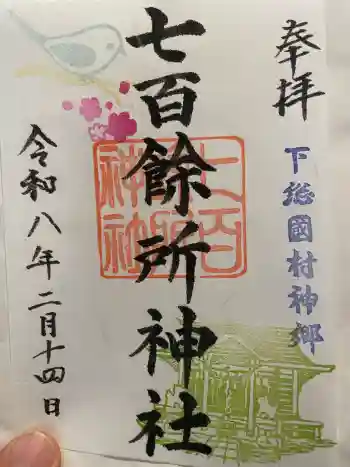 奉拝
下総國村神郷
七百餘所神社
七百餘所神社
令和八年二月十四日